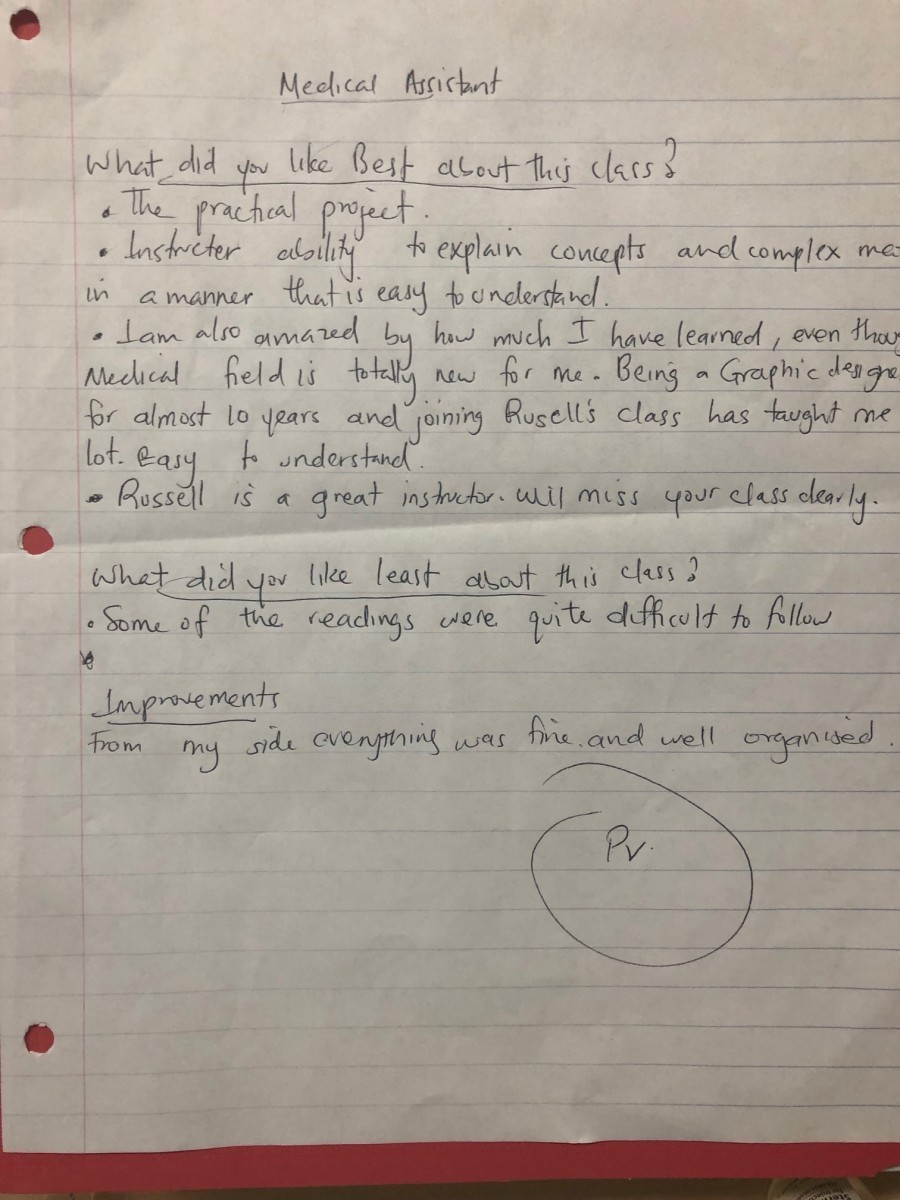 Medical Assistant
What did you like Best about this class?
• The practical project.
• Instructer ability to explain concepts and complex
in a manner that is easy to understand.
• I am also amazed by how much I have learned, even thou
Medical field is totally new for me. Being a Graphic designe
for almost 10 years and joining Rusell's class has taught me
lot. Easy to understand.
• Russell is a great instructor. Will miss your class dearly.
What did you like least about this class?
• Some of the readings were quite difficult to follow
Improvements
From my side everything was fine. and well organised.
Pv.